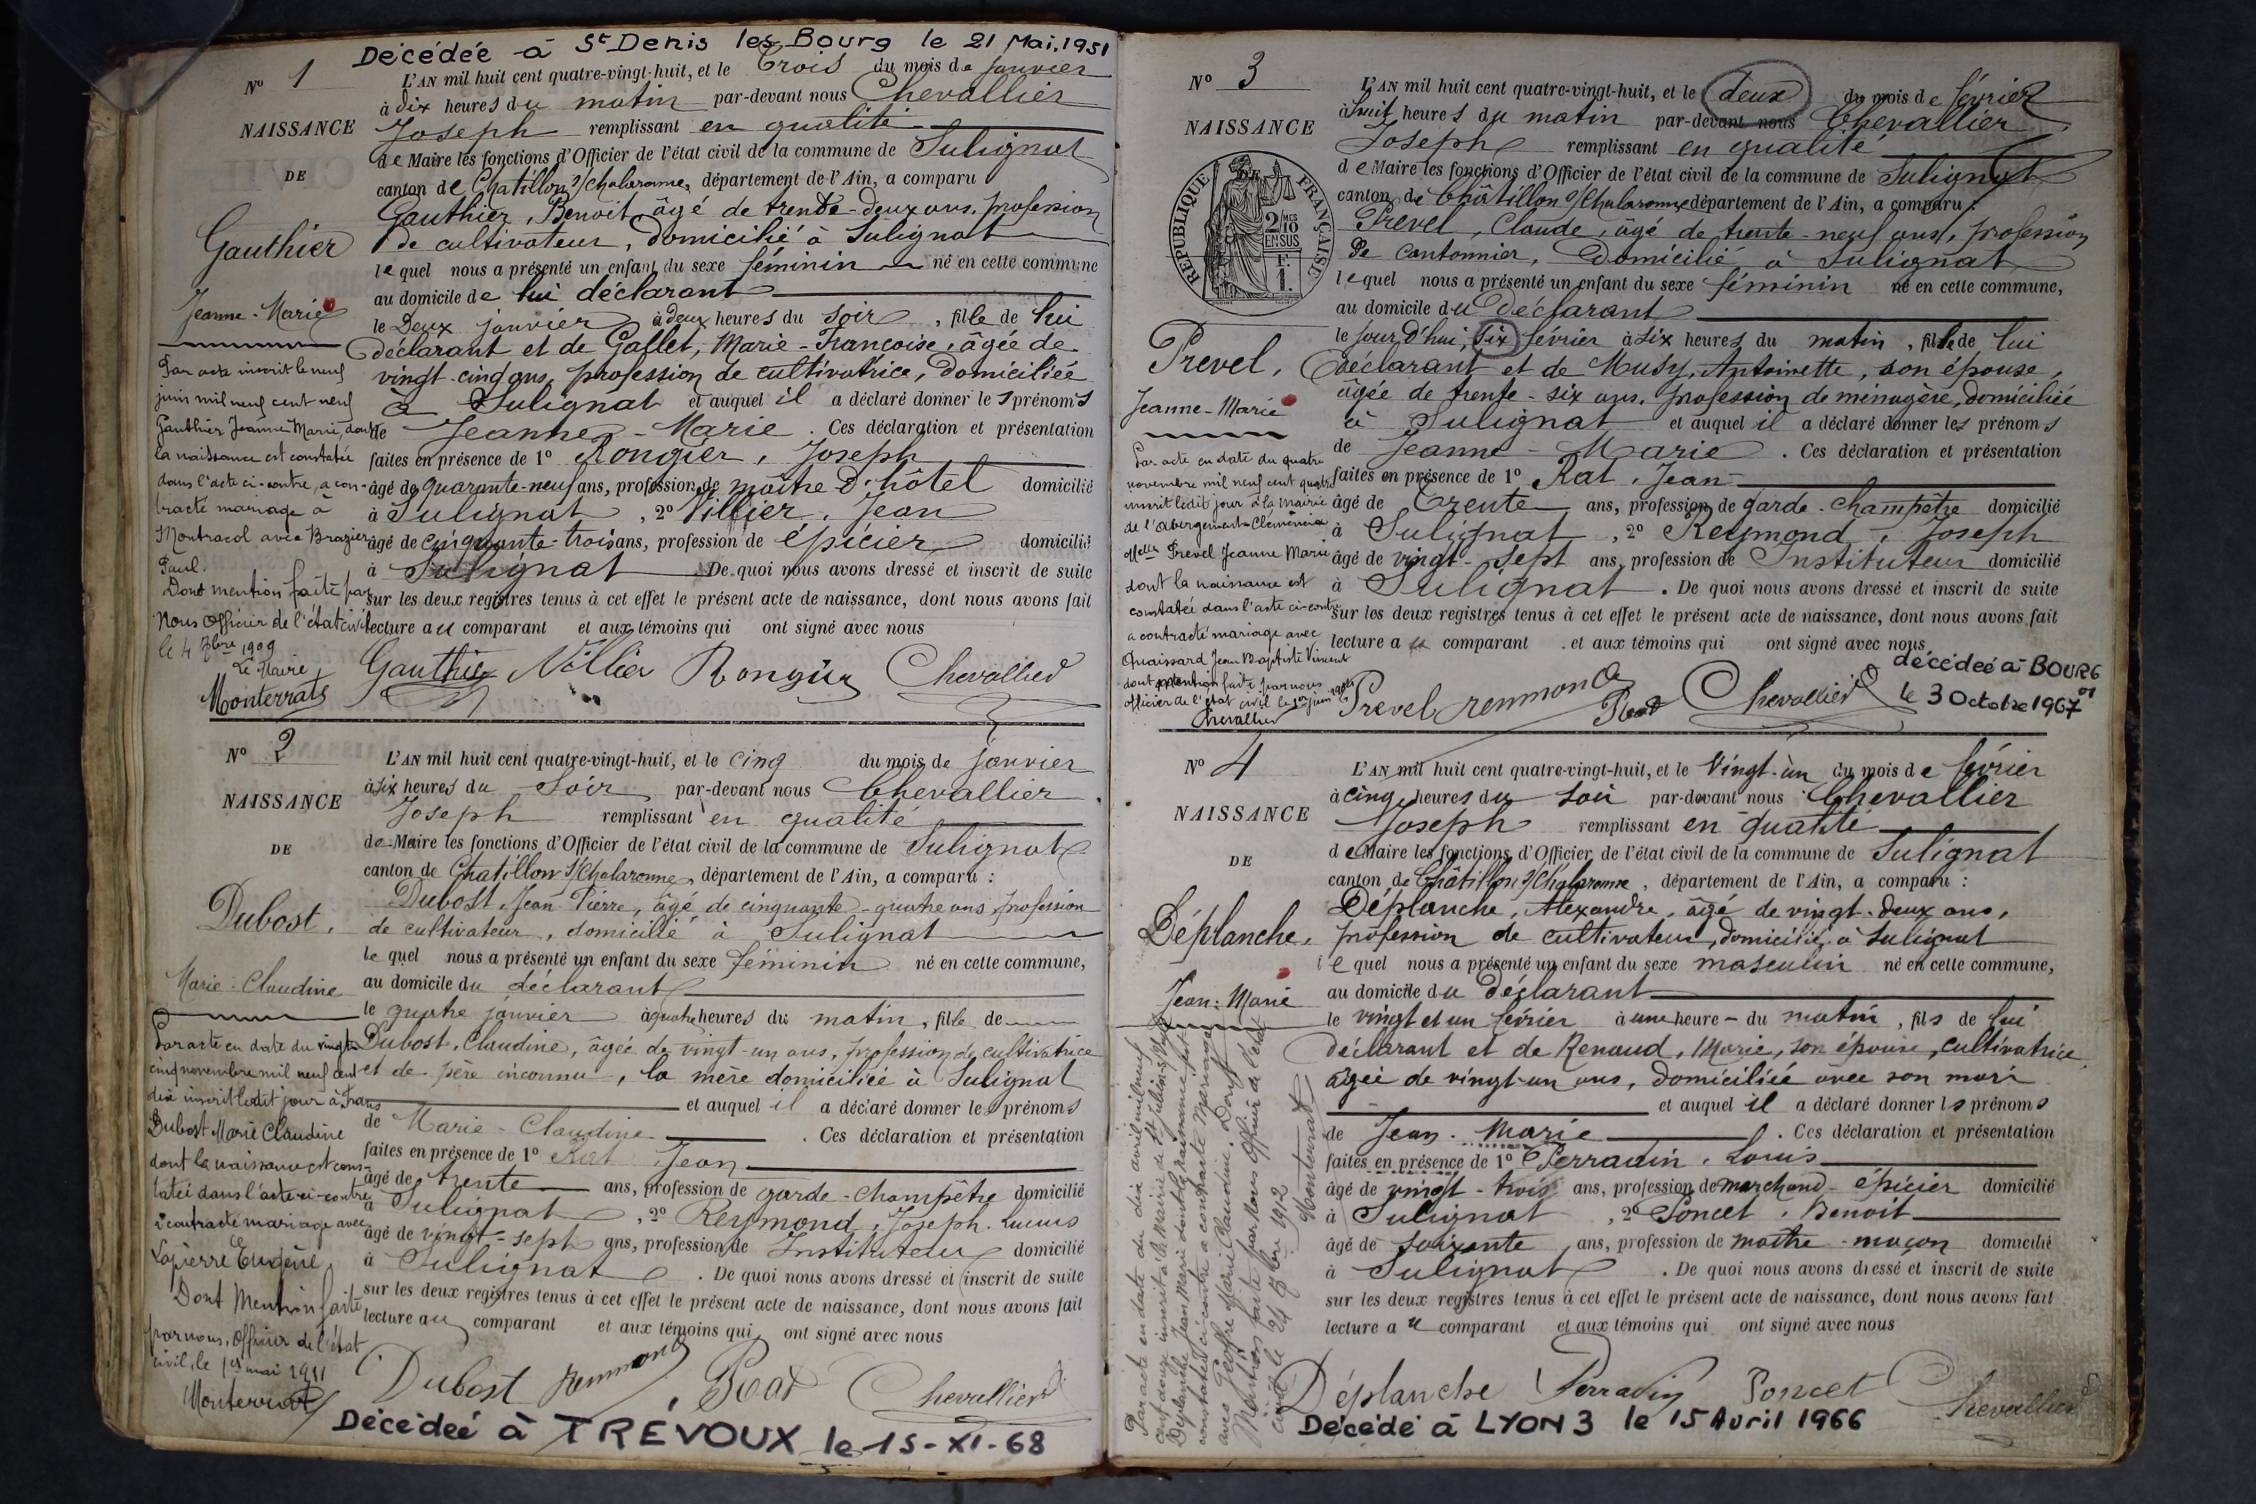 Décédée à St Denis les Bourg le 21 Mai 1951
No 1
NAISSANCE
DE
Gauthier
Jeanne-Marie
Par acte inscrit le neuf
juin mil neuf cent neuf
Gauthier Jeanne Marie, dont
la naissance est constatée
dans l'acte ci-contre, a con-
tracté mariage à
Montracol avec Brazier
Paul.
Dont mention faite par
Nous Officier de l'état civil
le 4 7bre 1909
Le Maire
Monterrat
L'AN mil huit cent quatre-vingt-huit, et le Trois du mois de janvier
à dix heures du matin par-devant nous Chevallier
Joseph remplissant en qualité
de Maire les fonctions d'Officier de l'état civil de la commune de Sulignat
canton de Chatillon s/Chalaronne, département de l'Ain, a comparu
Gauthier, Benoit, âgé de trente-deux ans, profession
de cultivateur, domicilié à Sulignat
lequel nous a présenté un enfant du sexe féminin né en cette commune
au domicile de lui déclarant
le Deux janvier à deux heures du soir, fille de lui
déclarant et de Gallet, Marie-Françoise, âgée de
vingt-cinq ans, profession de cultivatrice, domiciliée
à Sulignat et auquel il a déclaré donner les prénoms
de Jeanne-Marie. Ces déclaration et présentation
faites en présence de 1o Rongier, Joseph
âgé de quarante-neuf ans, profession de maître d'hôtel domicilié
à Sulignat, 2o Villier, Jean
âgé de cinquante-trois ans, profession de épicier domicilié
à Sulignat De quoi nous avons dressé et inscrit de suite
sur les deux registres tenus à cet effet le présent acte de naissance, dont nous avons fait
lecture au comparant et aux témoins qui ont signé avec nous
Gauthier Villier Rongier Chevallier
No 2
NAISSANCE
DE
Dubost.
Marie-Claudine
Par acte en date du vingt
cinq novembre mil neuf cent
dix inscrit ledit jour à Frans
Dubost Marie Claudine
dont la naissance est cons-
tatée dans l'acte ci-contre
a contracté mariage avec
Lapierre Eugène
Dont Mention faite
par nous, Officier de l'état
civil, le 1er mai 1911
Monterrat
L'AN mil huit cent quatre-vingt-huit, et le cinq du mois de janvier
à six heures du Soir par-devant nous Chevallier
Joseph remplissant en qualité
de Maire les fonctions d'Officier de l'état civil de la commune de Sulignat
canton de Chatillon s/Chalaronne, département de l'Ain, a comparu :
Dubost, Jean Pierre, âgé de cinquante-quatre ans, profession
de cultivateur, domicilié à Sulignat
lequel nous a présenté un enfant du sexe féminin né en cette commune,
au domicile du déclarant
le quatre janvier à quatre heures du matin, fille de
Dubost, Claudine, âgée de vingt-un ans, profession de cultivatrice
et de père inconnu, la mère domiciliée à Sulignat
et auquel il a déclaré donner les prénoms
de Marie-Claudine. Ces déclaration et présentation
faites en présence de 1o Rat, Jean
âgé de trente ans, profession de garde-champêtre domicilié
à Sulignat, 2o Reymond, Joseph
âgé de vingt-sept ans, profession de Instituteur domicilié
à Sulignat. De quoi nous avons dressé et inscrit de suite
sur les deux registres tenus à cet effet le présent acte de naissance, dont nous avons fait
lecture au comparant et aux témoins qui ont signé avec nous
Dubost Reymond Rat Chevallier
Décédée à TRÉVOUX le 15-XI-68
No 3
NAISSANCE
RÉPUBLIQUE FRANÇAISE
2/10 MES
EN SUS
1 F.
Prevel.
Jeanne-Marie
Par acte en date du quatre
novembre mil neuf cent quatre
inscrit ledit jour à la Mairie
de l'Abergement-Clémenciat
Melle Prevel Jeanne Marie
dont la naissance est
constatée dans l'acte ci-contre
a contracté mariage avec
Quaissard Jean Baptiste Vincent
dont mention faite par nous
officier de l'état civil le 1er juin
Chevallier
L'AN mil huit cent quatre-vingt-huit, et le deux du mois de février
à huit heures du matin par-devant nous Chevallier
Joseph remplissant en qualité
de Maire les fonctions d'Officier de l'état civil de la commune de Sulignat
canton de Châtillon s/Chalaronne département de l'Ain, a comparu :
Prevel, Claude, âgé de trente-neuf ans, profession
de cantonnier, domicilié à Sulignat
lequel nous a présenté un enfant du sexe féminin né en cette commune,
au domicile du déclarant
le jour d'hui, six février à six heures du matin, fille de lui
déclarant et de Musy, Antoinette, son épouse,
âgée de trente-six ans, profession de ménagère, domiciliée
à Sulignat et auquel il a déclaré donner les prénoms
de Jeanne-Marie. Ces déclaration et présentation
faites en présence de 1o Rat, Jean
âgé de Trente ans, profession de garde-champêtre domicilié
à Sulignat, 2o Reymond, Joseph
âgé de vingt-sept ans, profession de Instituteur domicilié
à Sulignat. De quoi nous avons dressé et inscrit de suite
sur les deux registres tenus à cet effet le présent acte de naissance, dont nous avons fait
lecture au comparant et aux témoins qui ont signé avec nous
décédée à BOURG
le 3 Octobre 1967
Prevel reymond Rat Chevallier
No 4
NAISSANCE
DE
Déplanche,
Jean-Marie
Par acte en date du dix avril mil neuf
cent douze inscrit à la Mairie de St Julien s/Veyle
Déplanche Jean Marie dont la naissance est
constatée ci-contre a contracté Mariage
avec Marie Claudine. Dont
Mention faite par Nous Officier de l'état
civil le 24 7bre 1912
Monterrat
L'AN mil huit cent quatre-vingt-huit, et le Vingt-un du mois de février
à cinq heures du soir par-devant nous Chevallier
Joseph remplissant en qualité
de Maire les fonctions d'Officier de l'état civil de la commune de Sulignat
canton de Châtillon s/Chalaronne, département de l'Ain, a comparu :
Déplanche, Alexandre, âgé de vingt-deux ans,
profession de cultivateur, domicilié à Sulignat
lequel nous a présenté un enfant du sexe masculin né en cette commune,
au domicile du déclarant
le vingt et un février à une heure du matin, fils de lui
déclarant et de Renaud, Marie, son épouse, cultivatrice
âgée de vingt-un ans, domiciliée avec son mari
et auquel il a déclaré donner ls prénoms
de Jean-Marie. Ces déclaration et présentation
faites en présence de 1o Perradin, Louis
âgé de vingt-trois ans, profession de marchand-épicier domicilié
à Sulignat, 2o Poncet, Benoit
âgé de soixante ans, profession de maître-maçon domicilié
à Sulignat. De quoi nous avons dressé et inscrit de suite
sur les deux registres tenus à cet effet le présent acte de naissance, dont nous avons fait
lecture au comparant et aux témoins qui ont signé avec nous
Déplanche Perradin Poncet Chevallier
Décédé à LYON 3 le 15 Avril 1966